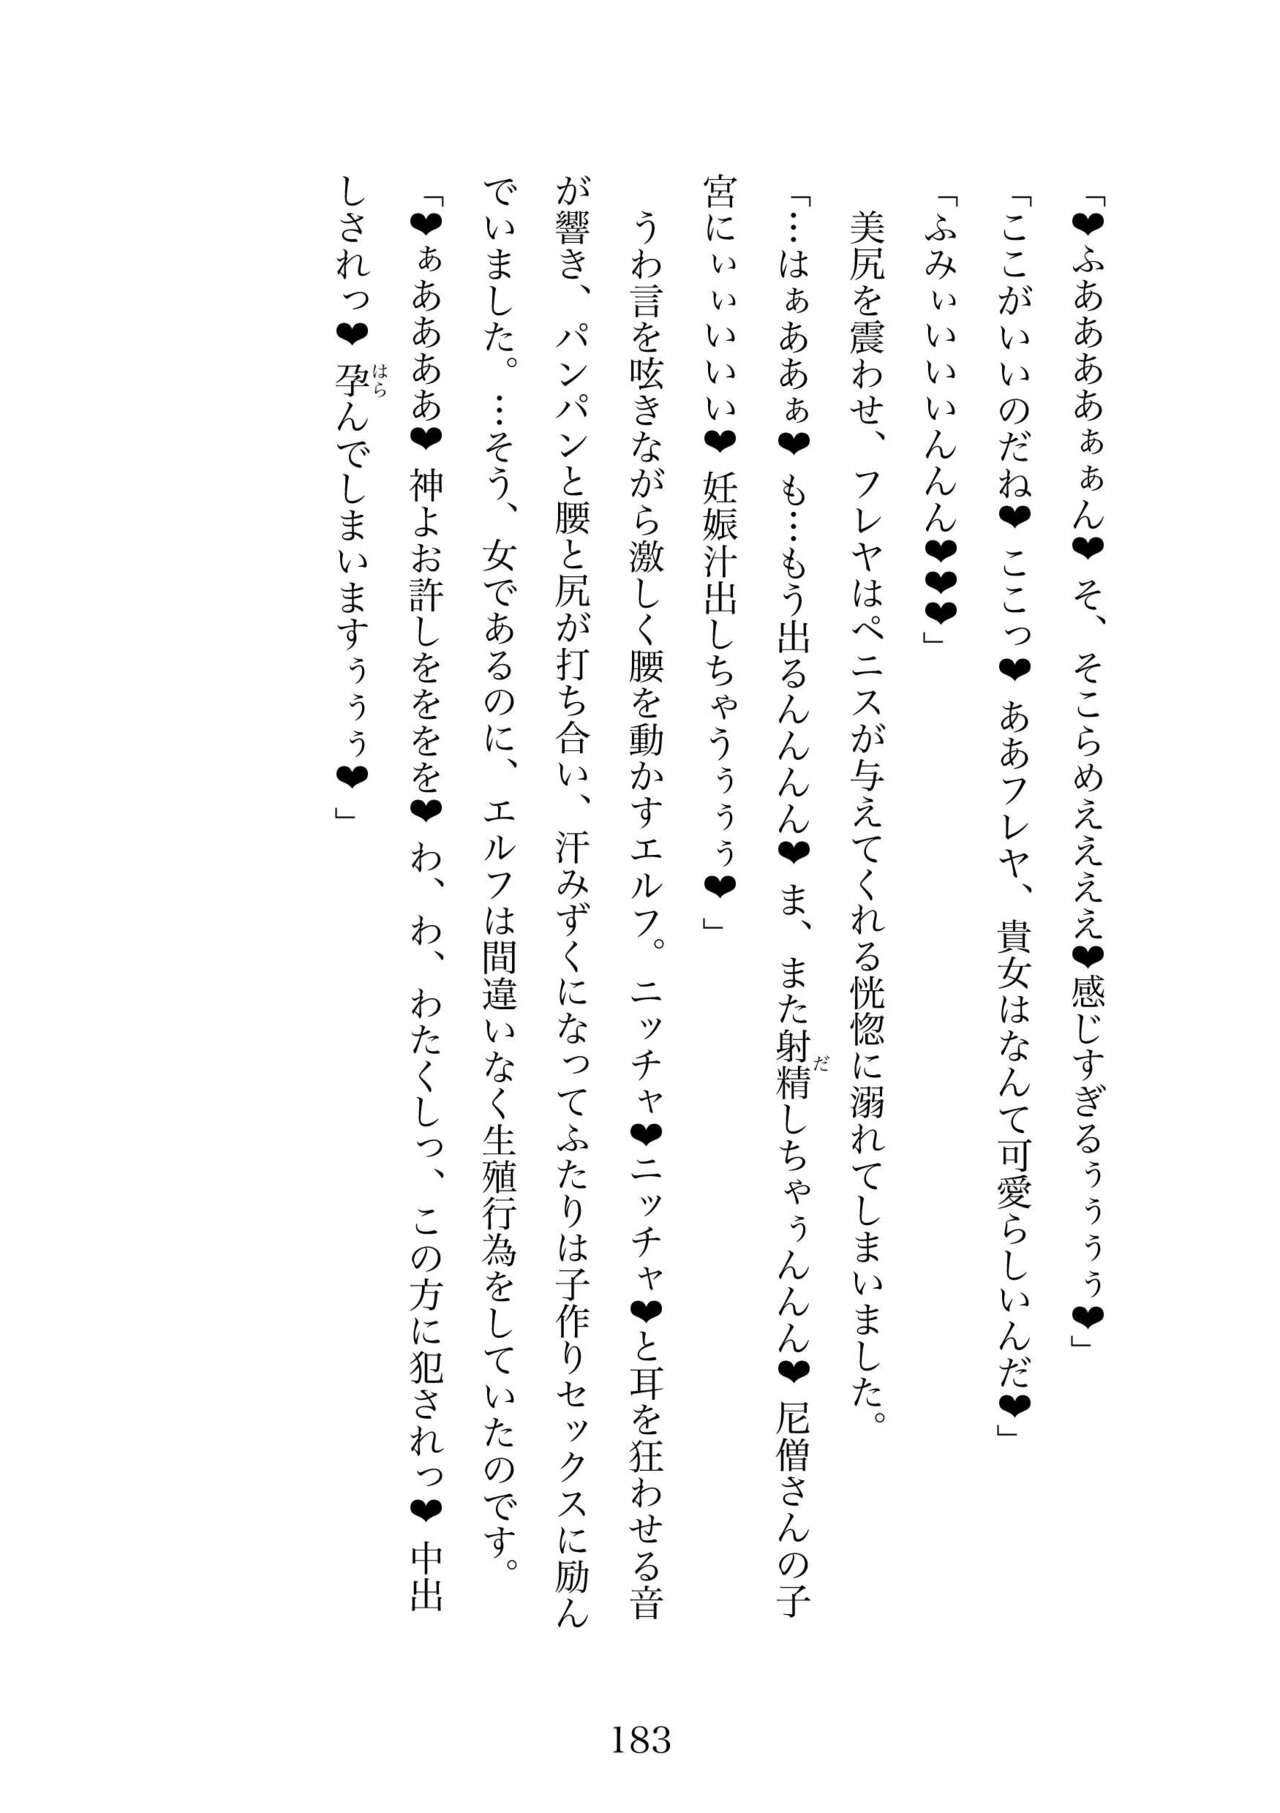 「❤ふああああぁぁん❤ そ、そこらめええええ❤感じすぎるぅぅぅぅ❤」
「ここがいいのだね❤ ここっ❤ ああフレヤ、貴女はなんて可愛らしいんだ❤」
「ふみぃいいいんんん❤❤❤」
　美尻を震わせ、フレヤはペニスが与えてくれる恍惚に溺れてしまいました。
「…はぁああぁ❤ も…もう出るんんんん❤ ま、また射精しちゃぅんんん❤ 尼僧さんの子
宮にぃぃいいい❤ 妊娠汁出しちゃうぅぅぅ❤」
　うわ言を呟きながら激しく腰を動かすエルフ。ニッチャ❤ニッチャ❤と耳を狂わせる音
が響き、パンパンと腰と尻が打ち合い、汗みずくになってふたりは子作りセックスに励ん
でいました。…そう、女であるのに、エルフは間違いなく生殖行為をしていたのです。
「❤ぁああああ❤ 神よお許しをををを❤ わ、わ、わたくしっ、この方に犯されっ❤ 中出
しされっ❤ 孕んでしまいますぅぅぅ❤」
だ
はら
183